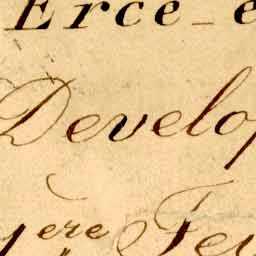 Erce_e
Develop
ere Feu